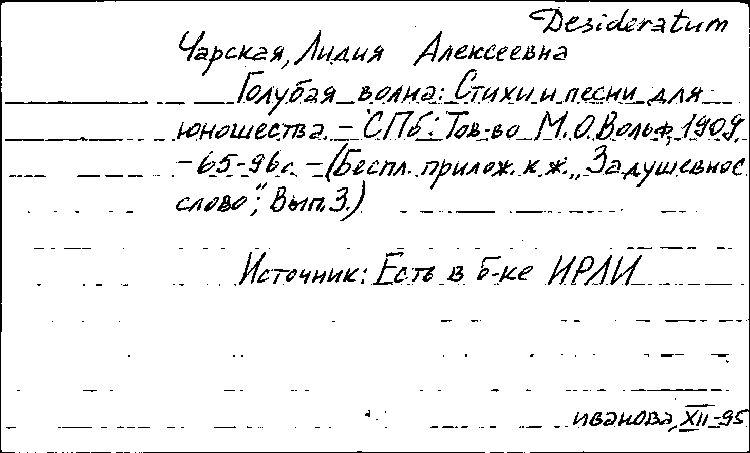 Desideratum
Чарская, Лидия Алексеевна
Голубая волна: Стихи и песни для
юношества. - СПб: Тов-во М.О.Вольф, 1909.
- 65-96с. - (Беспл. прилож. к ж. „Задушевное
слово", Вып.3.)
Источник: Есть в б-ке ИРЛИ
иванова, XII-95